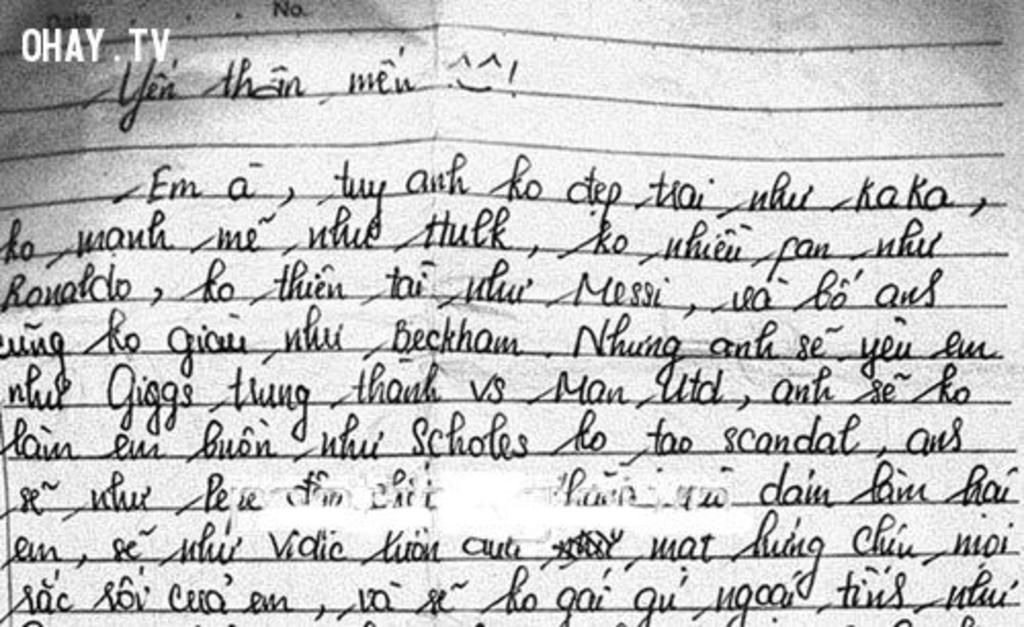 Date No.
OHAY.TV
Yến thân mến ^^!
Em à, tuy anh ko đẹp trai như KaKa,
ko mạnh mẽ như Hulk, ko nhiều fan như
Ronaldo, ko thiên tài như Messi, và bố ans
cũng ko giàu như Beckham. Nhưng anh sẽ yêu em
như Giggs trung thành vs Man Utd, anh sẽ ko
làm em buồn như Scholes ko tạo scandal, ans
sẽ như Pepe dám làm hại
em, sẽ như Vidic luôn mạt hứng chịu mọi
rắc rối của em, và sẽ ko gái gú ngoài tins như